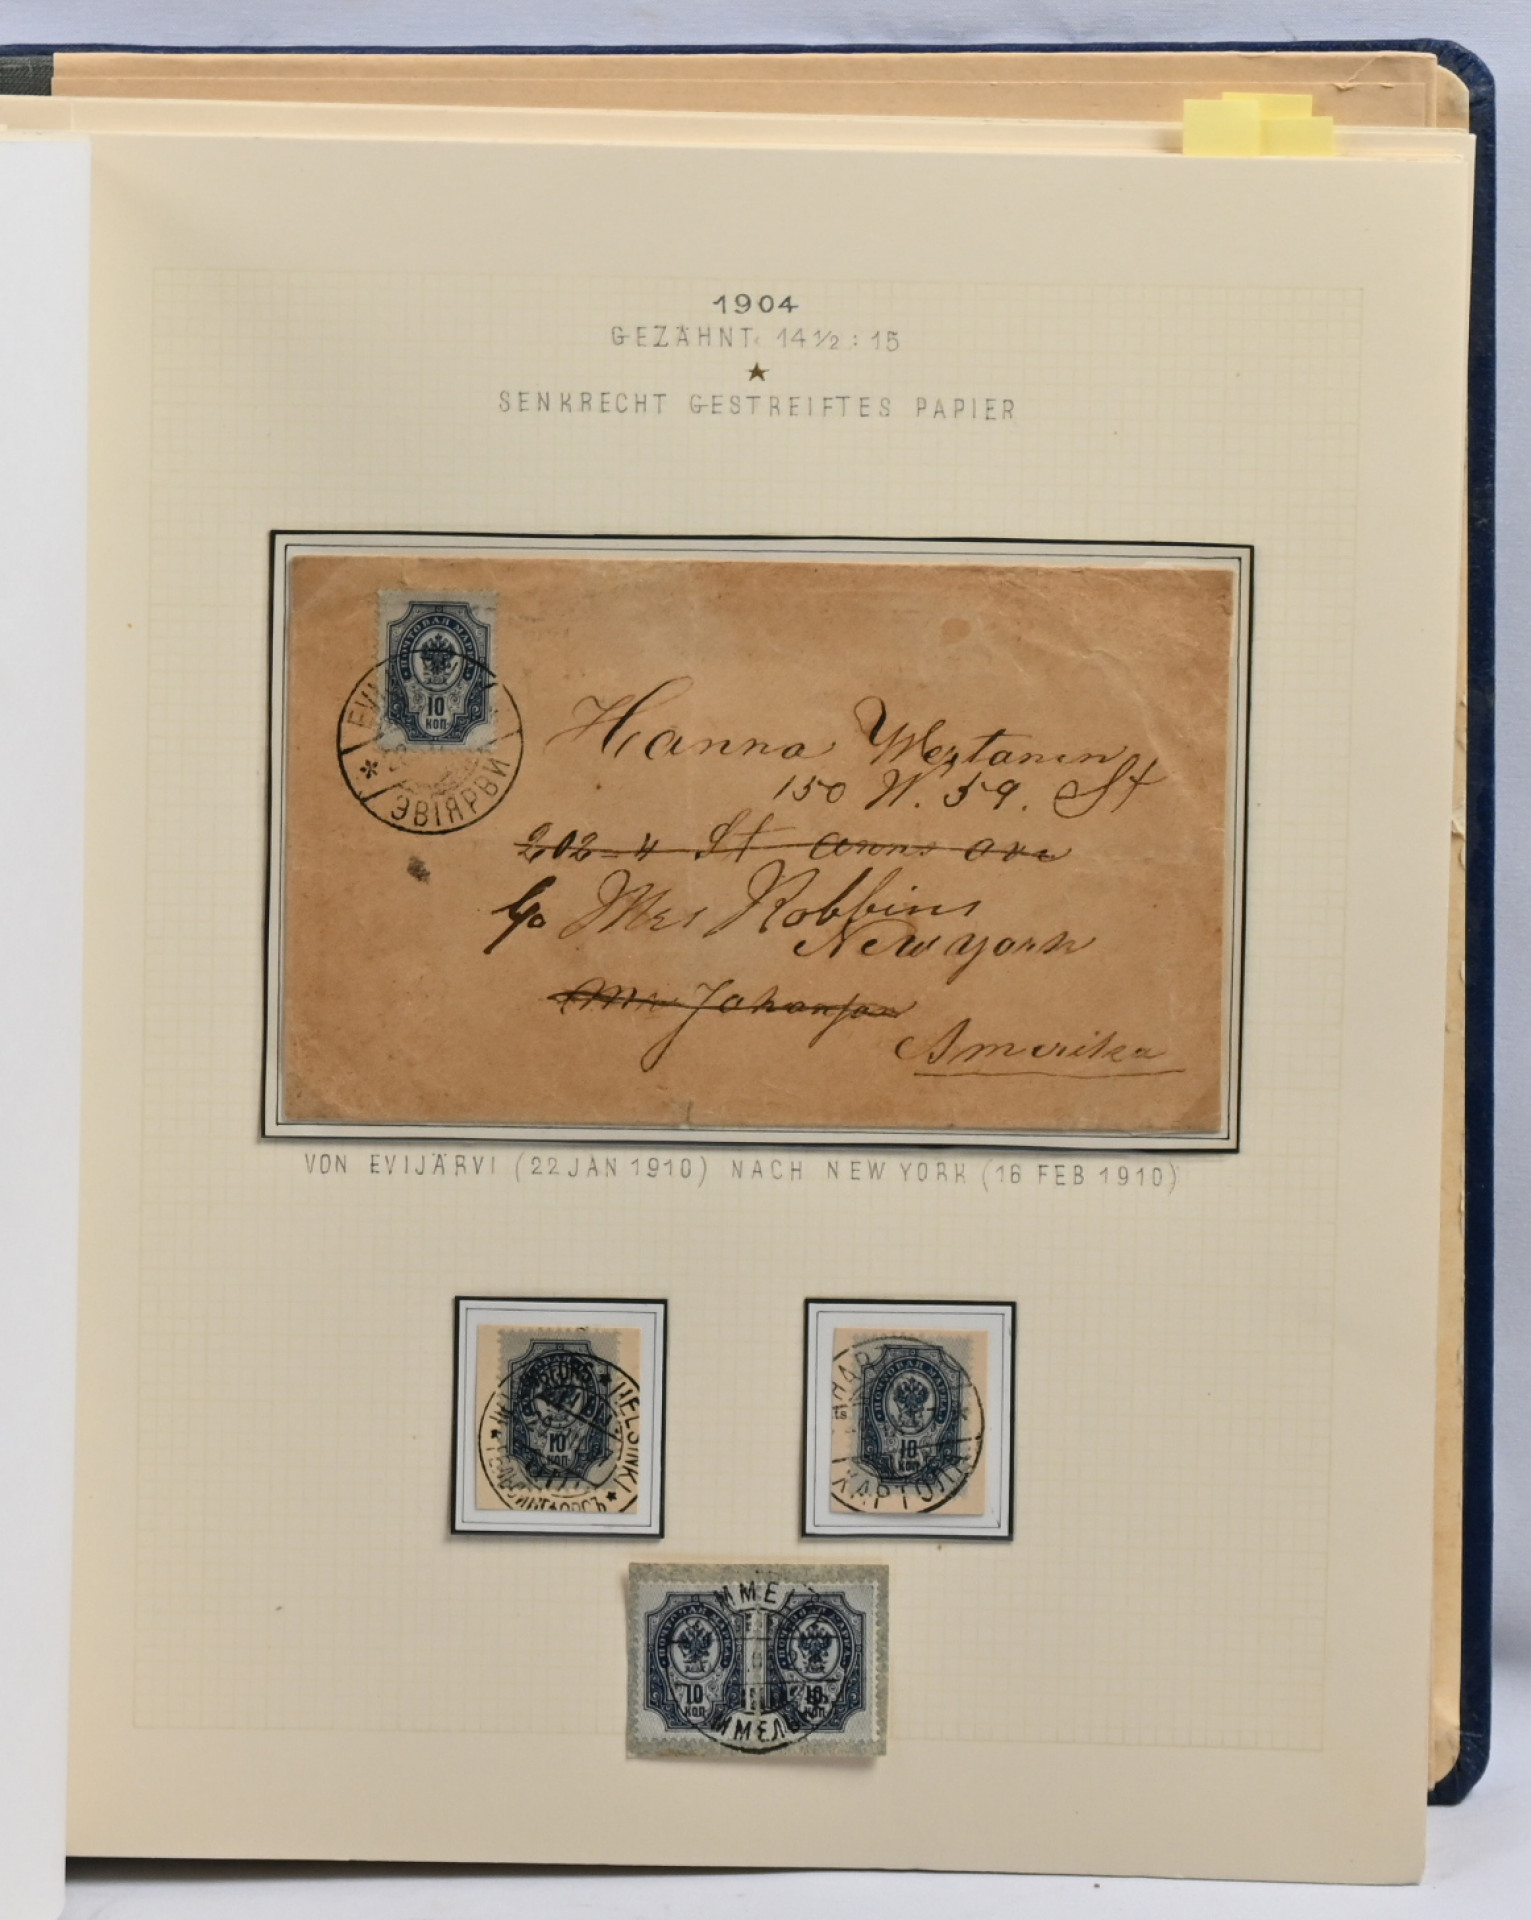 1904
GEZÄHNT 14½ : 15
SENKRECHT GESTREIFTES PAPIER
ПОЧТОВАЯ МАРКА
10
КОП
ЭВІЯРВИ
Hanna Westanen
150 W. 59. St
202 St anns ave
c/o Mrs Robbins
New york
Johansson
Amerika
VON EVIJÄRVI (22 JAN 1910) NACH NEW YORK (16 FEB 1910)
HELSINKI
10
КОП
10
КОП
КАРТОЛА
ПОЧТОВАЯ МАРКА
10
КОП
ПОЧТОВАЯ МАРКА
10
КОП